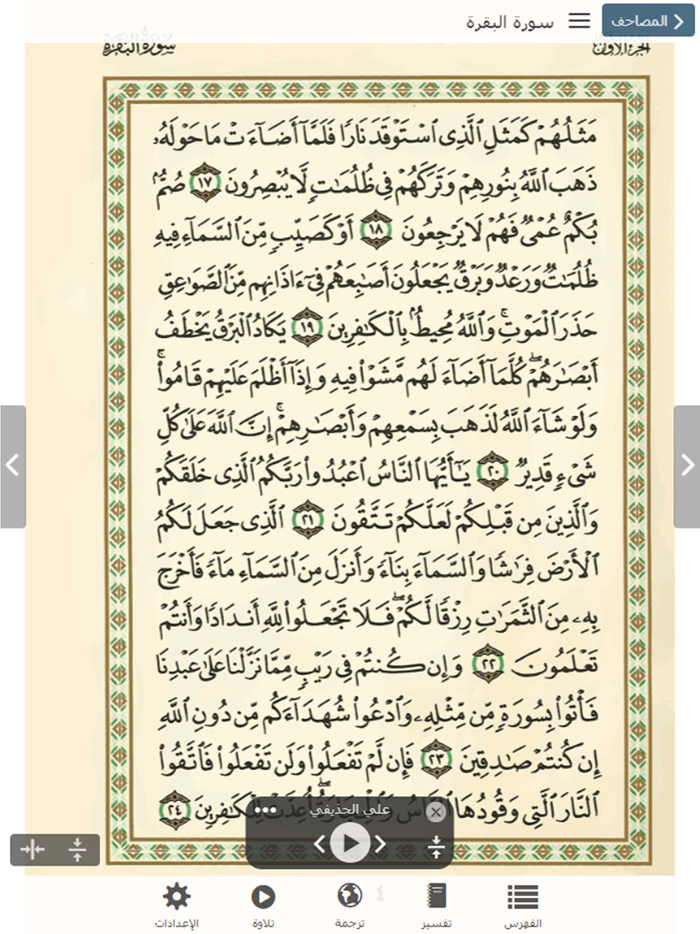 المصاحف
سورة البقرة
الجزء الأول
سورة البقرة
مَثَلُهُمْ كَمَثَلِ ٱلَّذِى ٱسْتَوْقَدَ نَارًا فَلَمَّآ أَضَآءَتْ مَا حَوْلَهُۥ
ذَهَبَ ٱللَّهُ بِنُورِهِمْ وَتَرَكَهُمْ فِى ظُلُمَـٰتٍ لَّا يُبْصِرُونَ ١٧ صُمٌّۢ
بُكْمٌ عُمْىٌ فَهُمْ لَا يَرْجِعُونَ ١٨ أَوْ كَصَيِّبٍ مِّنَ ٱلسَّمَآءِ فِيهِ
ظُلُمَـٰتٌ وَرَعْدٌ وَبَرْقٌ يَجْعَلُونَ أَصَـٰبِعَهُمْ فِىٓ ءَاذَانِهِم مِّنَ ٱلصَّوَٰعِقِ
حَذَرَ ٱلْمَوْتِ ۚ وَٱللَّهُ مُحِيطٌۢ بِٱلْكَـٰفِرِينَ ١٩ يَكَادُ ٱلْبَرْقُ يَخْطَفُ
أَبْصَـٰرَهُمْ ۖ كُلَّمَآ أَضَآءَ لَهُم مَّشَوْا۟ فِيهِ وَإِذَآ أَظْلَمَ عَلَيْهِمْ قَامُوا۟ ۚ
وَلَوْ شَآءَ ٱللَّهُ لَذَهَبَ بِسَمْعِهِمْ وَأَبْصَـٰرِهِمْ ۚ إِنَّ ٱللَّهَ عَلَىٰ كُلِّ
شَىْءٍ قَدِيرٌ ٢٠ يَـٰٓأَيُّهَا ٱلنَّاسُ ٱعْبُدُوا۟ رَبَّكُمُ ٱلَّذِى خَلَقَكُمْ
وَٱلَّذِينَ مِن قَبْلِكُمْ لَعَلَّكُمْ تَتَّقُونَ ٢١ ٱلَّذِى جَعَلَ لَكُمُ
ٱلْأَرْضَ فِرَٰشًا وَٱلسَّمَآءَ بِنَآءً وَأَنزَلَ مِنَ ٱلسَّمَآءِ مَآءً فَأَخْرَجَ
بِهِۦ مِنَ ٱلثَّمَرَٰتِ رِزْقًا لَّكُمْ ۖ فَلَا تَجْعَلُوا۟ لِلَّهِ أَندَادًا وَأَنتُمْ
تَعْلَمُونَ ٢٢ وَإِن كُنتُمْ فِى رَيْبٍ مِّمَّا نَزَّلْنَا عَلَىٰ عَبْدِنَا
فَأْتُوا۟ بِسُورَةٍ مِّن مِّثْلِهِۦ وَٱدْعُوا۟ شُهَدَآءَكُم مِّن دُونِ ٱللَّهِ
إِن كُنتُمْ صَـٰدِقِينَ ٢٣ فَإِن لَّمْ تَفْعَلُوا۟ وَلَن تَفْعَلُوا۟ فَٱتَّقُوا۟
ٱلنَّارَ ٱلَّتِى وَقُودُهَا ٱلنَّاسُ وَٱلْحِجَارَةُ ۖ أُعِدَّتْ لِلْكَـٰفِرِينَ ٢٤
علي الحذيفي
٤
الفهرس
تفسير
ترجمة
تلاوة
الإعدادات